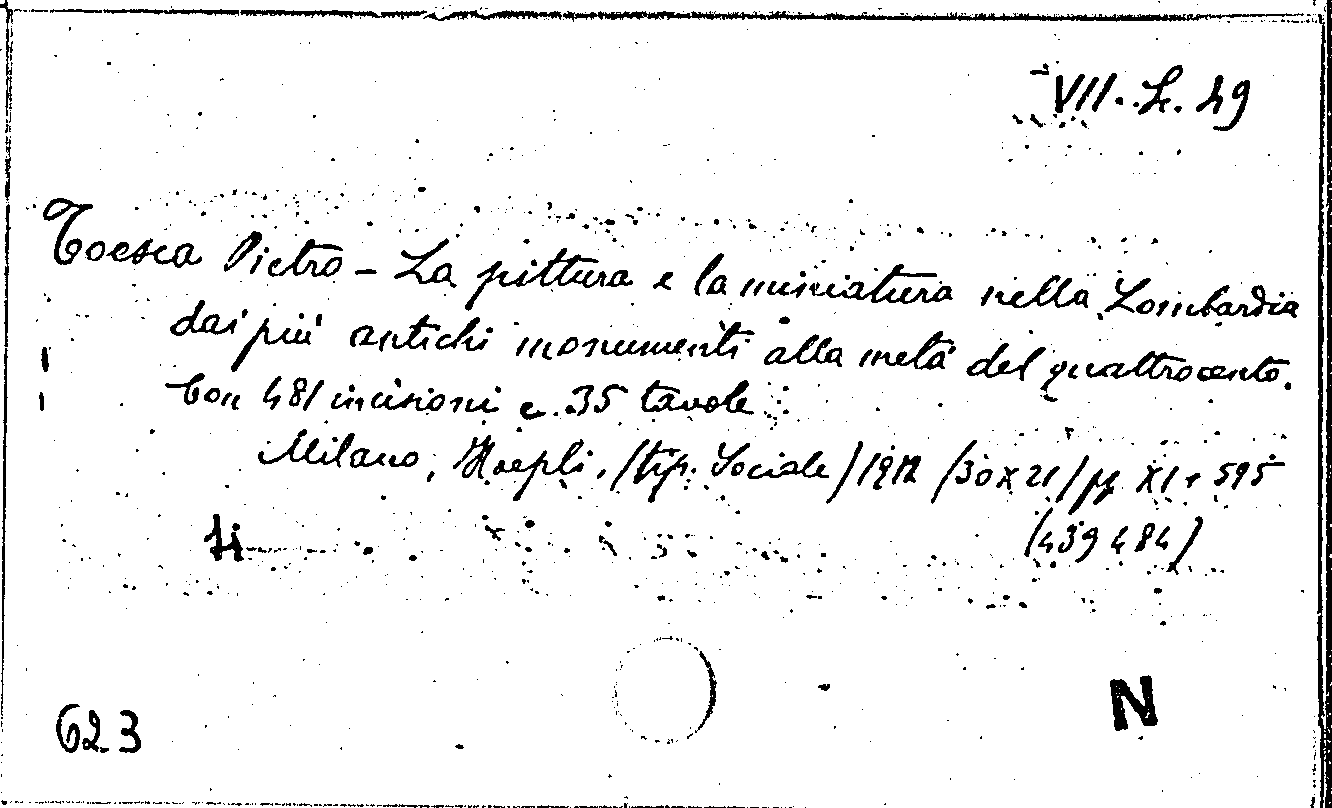 VII. L. 49
Toesca Pietro - La pittura e la miniatura nella Lombardia
dai più antichi monumenti alla metà del quattrocento.
Con 481 incisioni e 35 tavole
Milano, Hoepli, (tip. Sociale) 1912 (30x21) pp XI + 595
(439484)
623
N